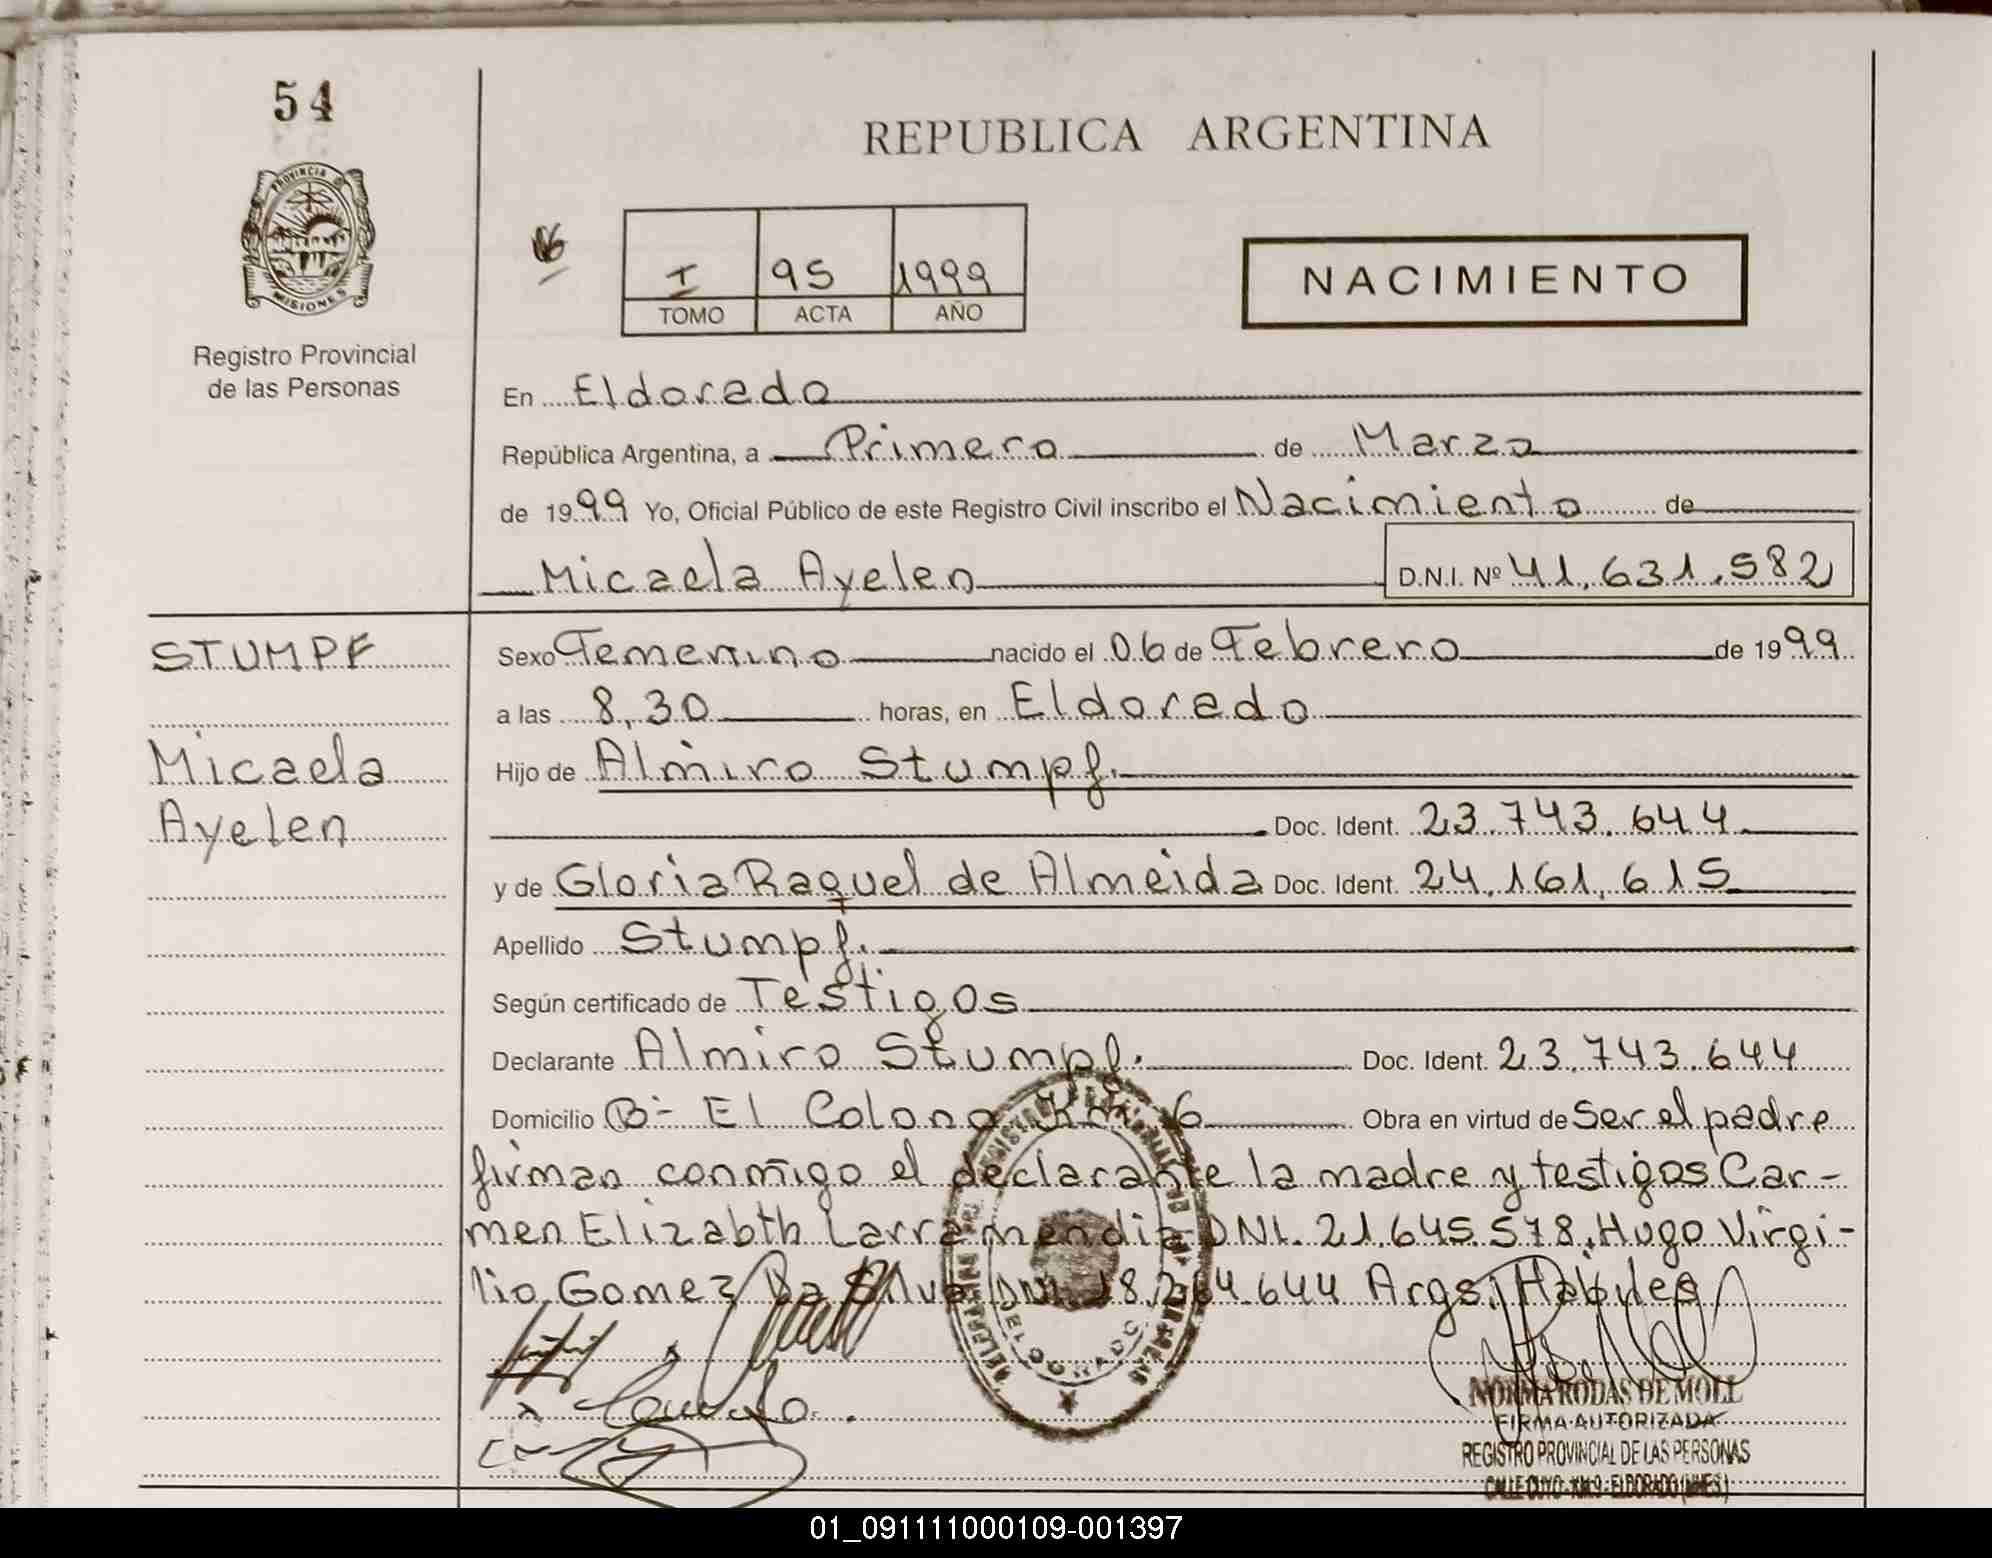 54
REPUBLICA ARGENTINA
PROVINCIA DE
MISIONES
I 95 1999
TOMO ACTA AÑO
NACIMIENTO
Registro Provincial
de las Personas
En Eldorado
República Argentina, a Primero de Marzo
de 1999 Yo, Oficial Público de este Registro Civil inscribo el Nacimiento de
Micaela Ayelen D.N.I. Nº 41.631.582
STUMPF
Micaela
Ayelen
Sexo Femenino nacido el 06 de Febrero de 1999
a las 8,30 horas, en Eldorado
Hijo de Almiro Stumpf.
Doc. Ident. 23.743.644
y de Gloria Raquel de Almeida Doc. Ident. 24.161.615
Apellido Stumpf.
Según certificado de Testigos
Declarante Almiro Stumpf. Doc. Ident. 23.743.644
Domicilio Bº El Colono Km 6 Obra en virtud de Ser el padre
firman conmigo el declarante la madre y testigos Car-
men Elizabth Larramendia DNI. 21.645.578, Hugo Virgi-
lio Gomez Da Silva DNI 18.264.644 Args. Habiles
ELDORADO
NORMA RODAS DE MOLL
FIRMA AUTORIZADA
REGISTRO PROVINCIAL DE LAS PERSONAS
CALLE CUYO - KM. 9 - ELDORADO (MNES.)
01_091111000109-001397